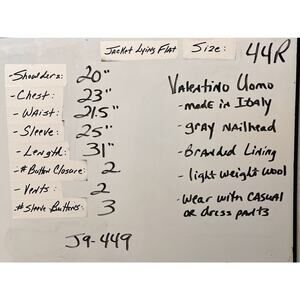 Jacket Lying Flat Size: 44R
-Shoulders: 20"
-Chest: 23"
-Waist: 21.5"
-Sleeve: 25"
-Length: 31"
-# Button Closure: 2
-Vents: 2
# Sleeve Buttons: 3
J9-449
Valentino Uomo
-made in Italy
-gray Nailhead
-Branded Lining
-light weight wool
-wear with casual
or dress pants